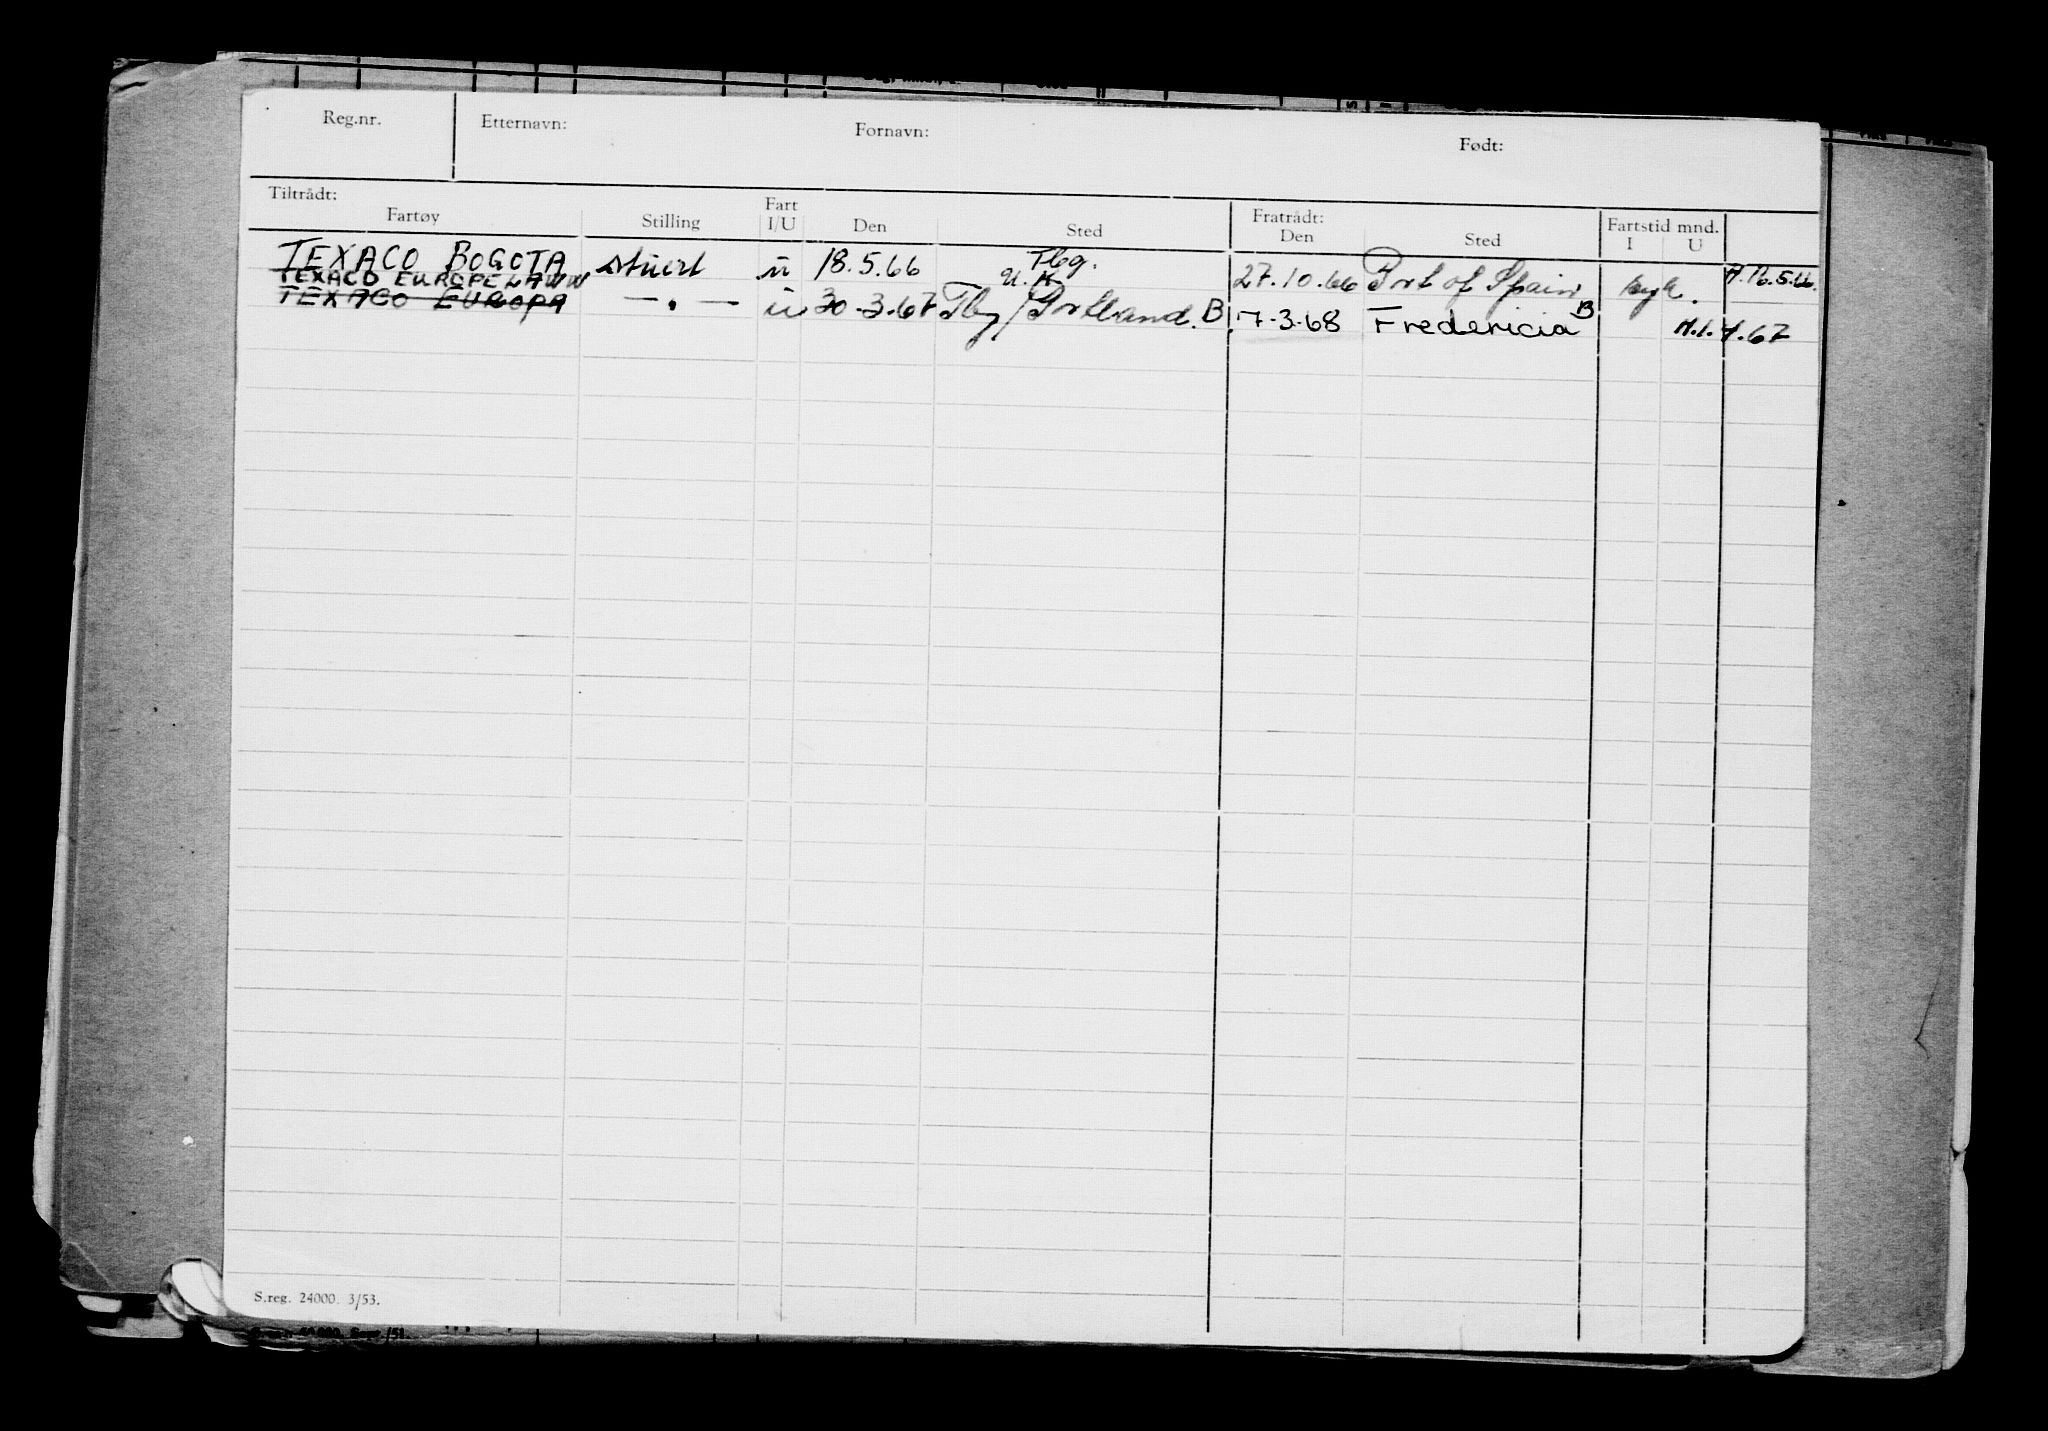 Reg.nr. Etternavn: Fornavn: Født:
Tiltrådt: Fratrådt: Fartstid mnd.
Fartøy Stilling Fart I/U Den Sted Den Sted I U
TEXACO BOGOTA stuert u 18.5.66 Tbg. 27.10.66 Port of Spain syk. A.16.5.66.
TEXACO EUROPE U.K.
TEXACO EUROPA — " — u 30.3.67 Tbg/Portland. B. 7.3.68 Fredericia B A.1.4.67
S.reg. 24000. 3/53.